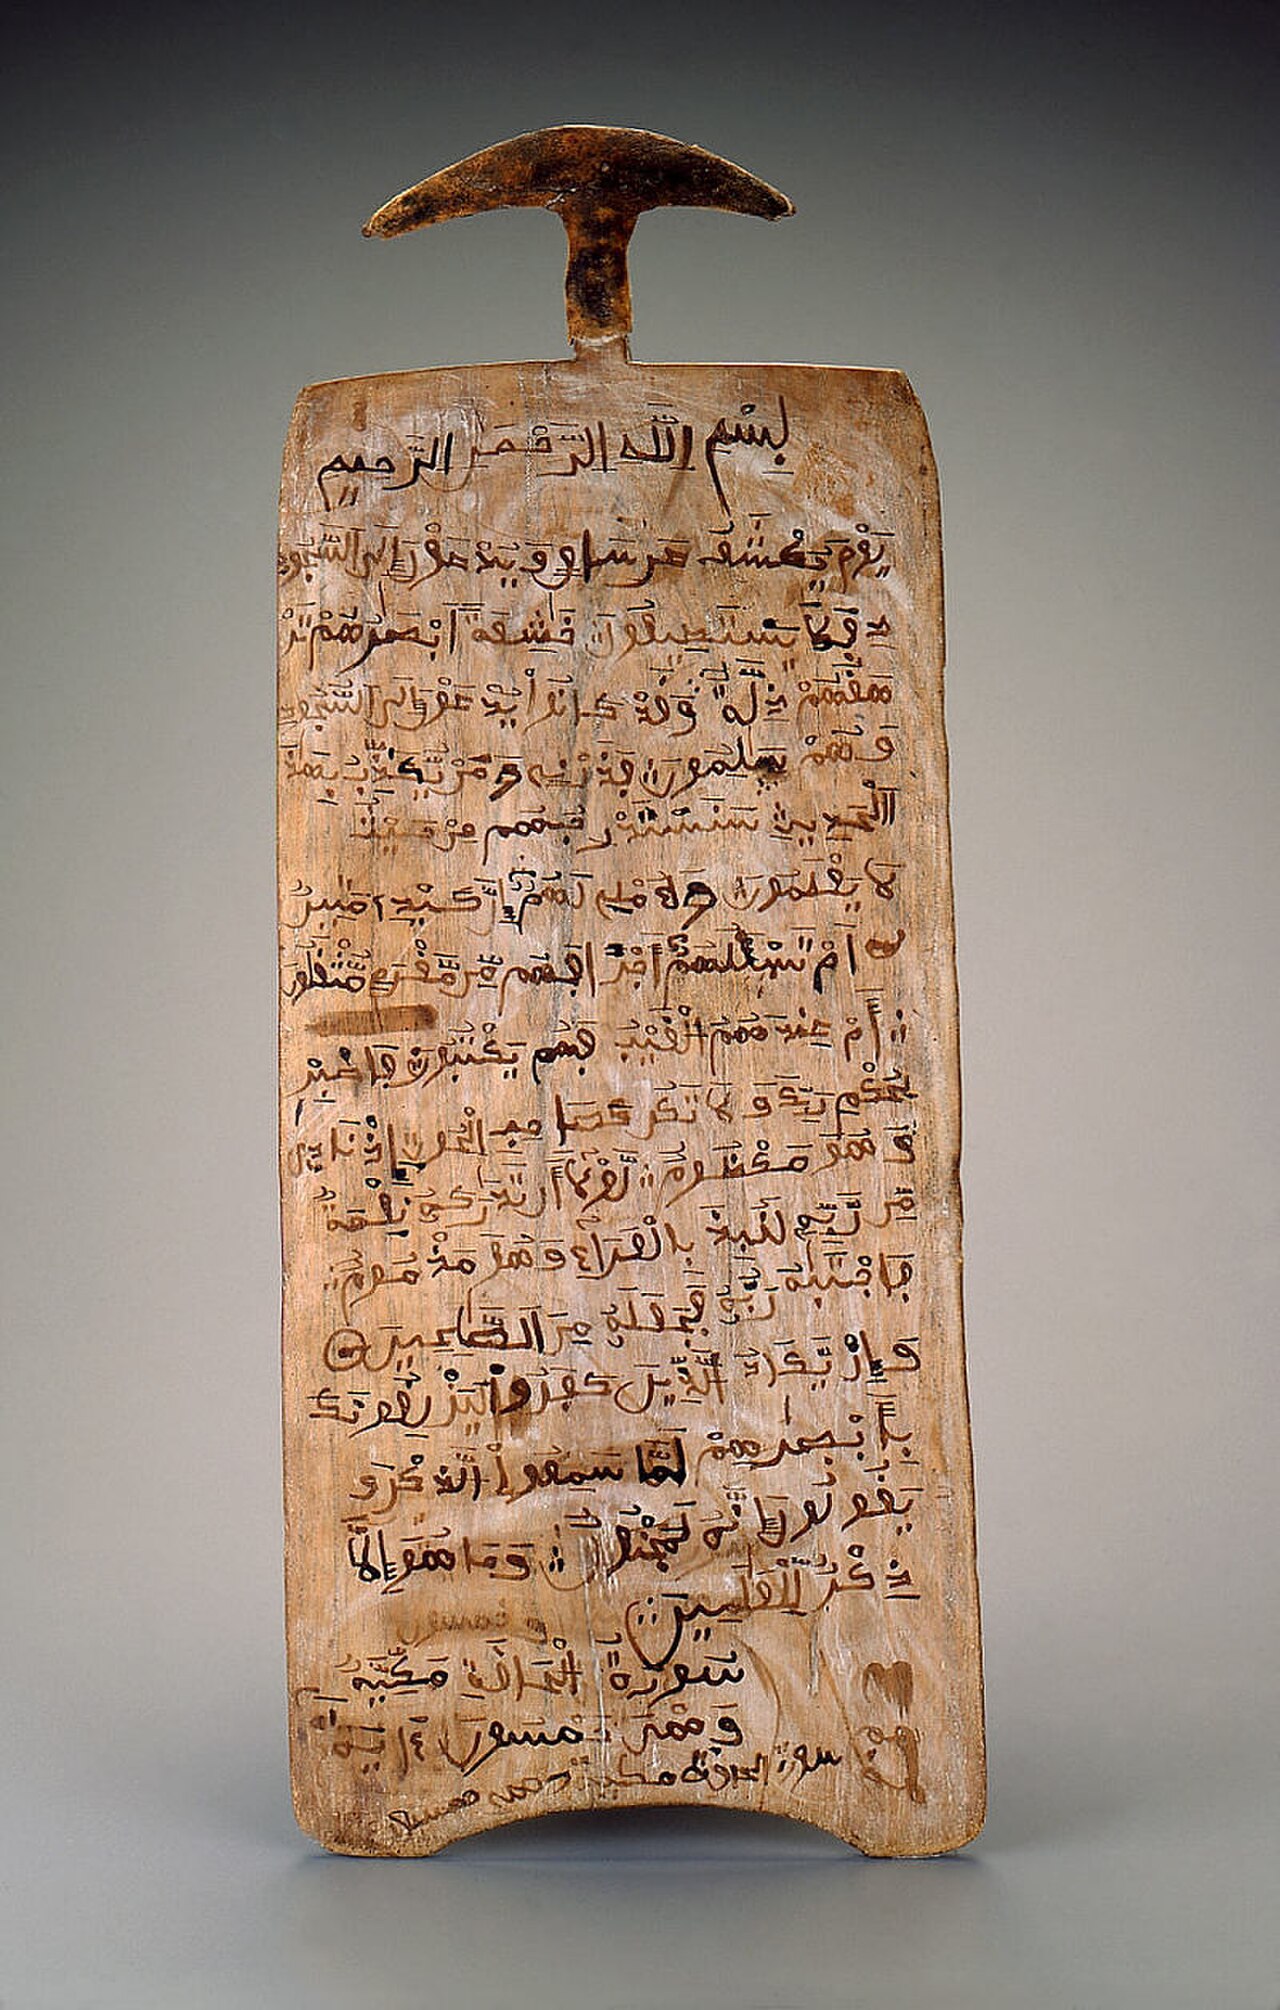 بِسْمِ اللَّهِ الرَّحْمَنِ الرَّحِيمِ
يَوْمَ يُكْشَفُ عَن سَاقٍ وَيُدْعَوْنَ إِلَى السُّجُو
دِ فَلَا يَسْتَطِيعُونَ خَشِعَةً أَبْصَرُهُمْ تَرْ
هَقُهُمْ ذِلَّةٌ وَقَدْ كَانُوا يُدْعَوْنَ إِلَى السُّجُودِ
وَهُمْ سَلِمُونَ فَذَرْنِي وَمَن يُكَذِّبُ بِهَذَا
الْحَدِيثِ سَنَسْتَدْرِجُهُم مِّنْ حَيْثُ
لَا يَعْلَمُونَ وَأُمْلِي لَهُمْ إِنَّ كَيْدِي مَتِينٌ
أَمْ تَسْئَلُهُمْ أَجْرًا فَهُم مِّن مَّغْرَمٍ مُّثْقَلُو
نَ أَمْ عِندَهُمُ الْغَيْبُ فَهُمْ يَكْتُبُونَ فَاصْبِرْ
لِحُكْمِ رَبِّكَ وَلَا تَكُن كَصَاحِبِ الْحُوتِ إِذْ نَادَى
وَهُوَ مَكْظُومٌ لَوْلَا أَن تَدَرَكَهُ نِعْمَةٌ
مِّن رَّبِّهِ لَنُبِذَ بِالْعَرَاءِ وَهُوَ مَذْمُومٌ
فَاجْتَبَهُ رَبُّهُ فَجَعَلَهُ مِنَ الصَّلِحِينَ
وَإِن يَكَادُ الَّذِينَ كَفَرُوا لَيُزْلِقُونَكَ
بِأَبْصَرِهِمْ لَمَّا سَمِعُوا الذِّكْرَ وَ
يَقُولُونَ إِنَّهُ لَمَجْنُونٌ وَمَا هُوَ إِلَّا
ذِكْرٌ لِّلْعَلَمِينَ
سُورَةُ الْحَاقَّةِ مَكِّيَّةٌ
وَهِيَ خمسون ءاية
سورة الحاقة مكية